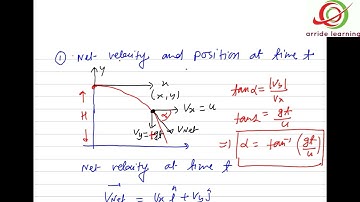 arride learning
① Net velocity and position at time t
y
u
(x, y)
H
Vx = u
α
Vy = gt
VNet
tanα = |Vy| / Vx
tanα = gt / u
⇒ α = tan⁻¹ (gt / u)
Net velocity at time t
VNet = Vx î + Vy ĵ